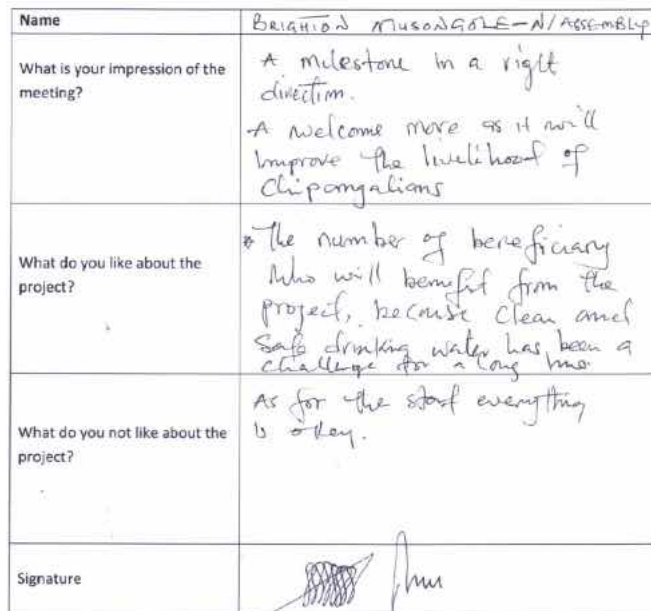 Name
BRIGHTON MUSONGOLE-N/ASSEMBLY
What is your impression of the
meeting?
A milestone in a right
direction.
A welcome more as it will
improve the livelihood of
Chipangalians
What do you like about the
project?
* The number of beneficiary
who will benefit from the
project, because clean and
safe drinking water has been a
challenge for a long time
What do you not like about the
project?
As for the start everything
is okey.
Signature